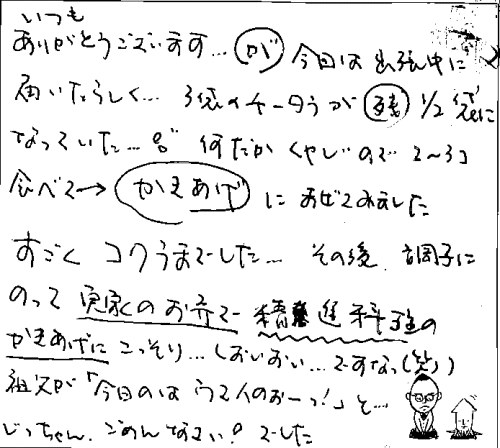 いつも
ありがとうございます… が 今回は出張中に
届いたらしく… 3袋のチータラが 残 1/2袋に
なっていた…。何だかくやしいので 2〜3コ
食べて→ かきあげ にまぜてみました
すごく コクうまでした… その後、調子に
のって 実家のお弁で 精進料理の
かきあげに こっそり… しおいおい… ですな(笑)
祖父が「今日のは ウマイのおーっ!」と…
じっちゃん、ごめんなさい? でした